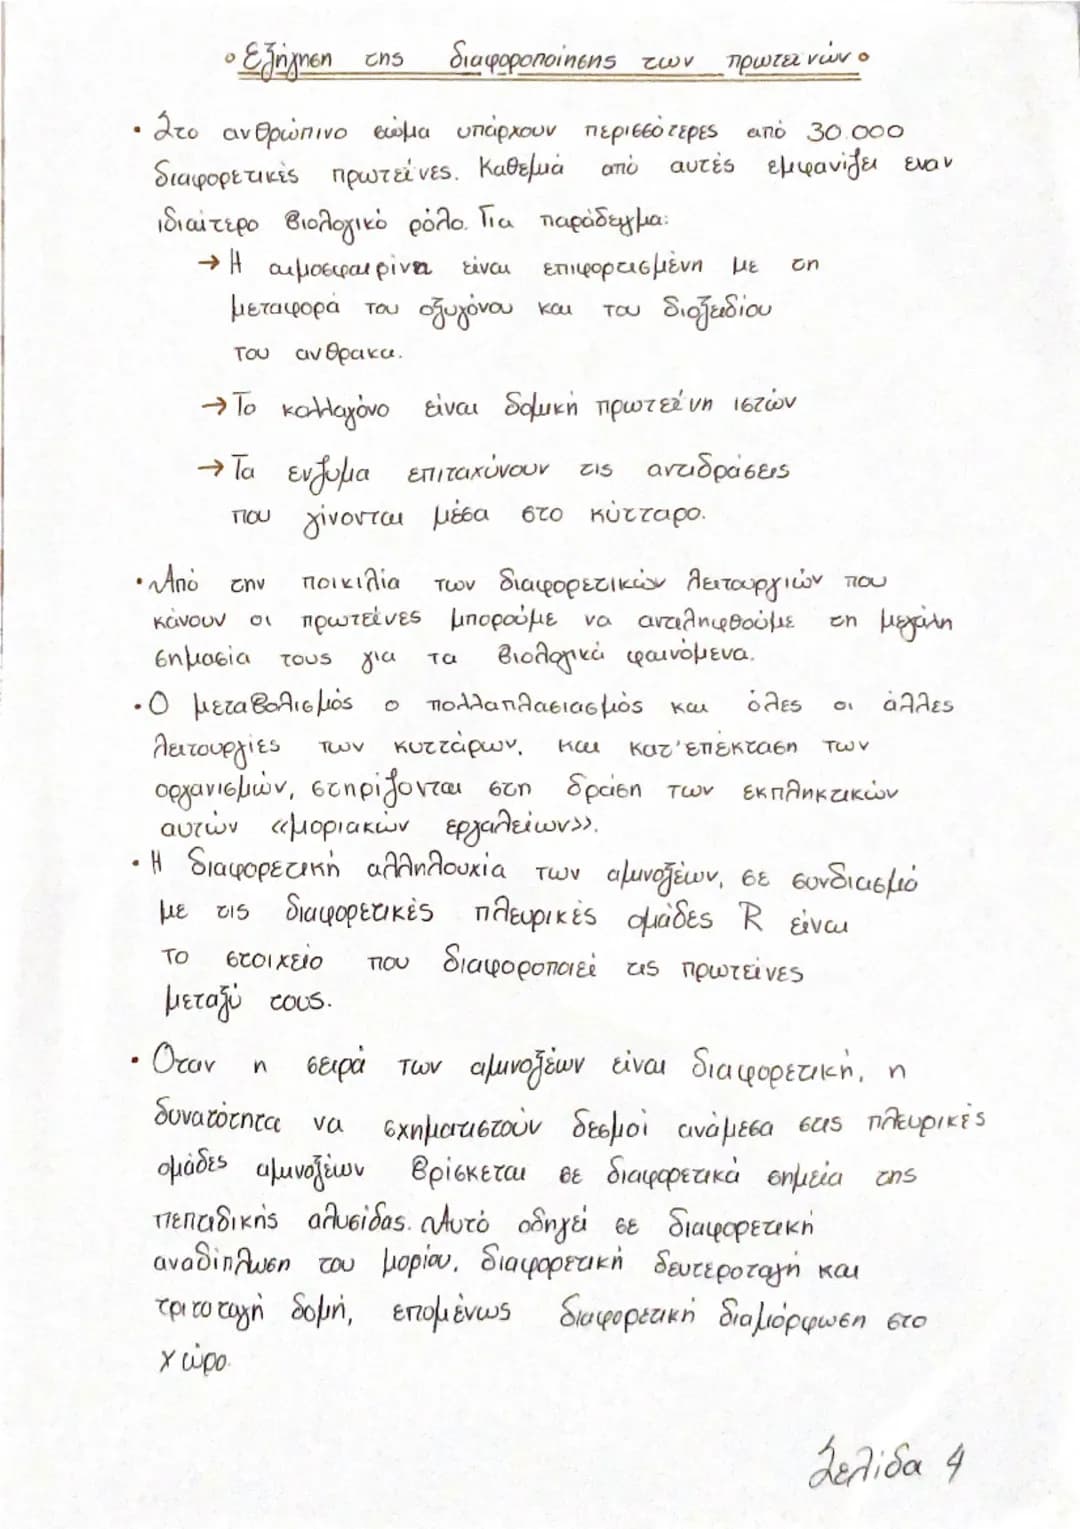 Εξήγηση της διαφοροποίησης των πρωτεϊνών
• Στο ανθρώπινο σώμα υπάρχουν περισσότερες από 30.000
διαφορετικές πρωτεΐνες. Καθεμιά από αυτές εμφανίζει έναν
ιδιαίτερο βιολογικό ρόλο. Για παράδειγμα:
→ Η αιμοσφαιρίνη είναι επιφορτισμένη με τη
μεταφορά του οξυγόνου και του διοξειδίου
του άνθρακα.
→ Το κολλαγόνο είναι δομική πρωτεΐνη ιστών
→ Τα ένζυμα επιταχύνουν τις αντιδράσεις
που γίνονται μέσα στο κύτταρο.
• Από την ποικιλία των διαφορετικών λειτουργιών που
κάνουν οι πρωτεΐνες μπορούμε να αντιληφθούμε τη μεγάλη
σημασία τους για τα βιολογικά φαινόμενα.
• Ο μεταβολισμός ο πολλαπλασιασμός και όλες οι άλλες
λειτουργίες των κυττάρων, και κατ' επέκταση των
οργανισμών, στηρίζονται στη δράση των εκπληκτικών
αυτών «μοριακών εργαλείων».
• Η διαφορετική αλληλουχία των αμινοξέων, σε συνδιασμό
με τις διαφορετικές πλευρικές ομάδες R είναι
το στοιχείο που διαφοροποιεί τις πρωτεΐνες
μεταξύ τους.
• Όταν η σειρά των αμινοξέων είναι διαφορετική, η
δυνατότητα να σχηματιστούν δεσμοί ανάμεσα στις πλευρικές
ομάδες αμινοξέων βρίσκεται σε διαφορετικά σημεία της
πεπτιδικής αλυσίδας. Αυτό οδηγεί σε διαφορετική
αναδίπλωση του μορίου, διαφορετική δευτεροταγή και
τριτοταγή δομή, επομένως διαφορετική διαμόρφωση στο
χώρο.
Σελίδα 4